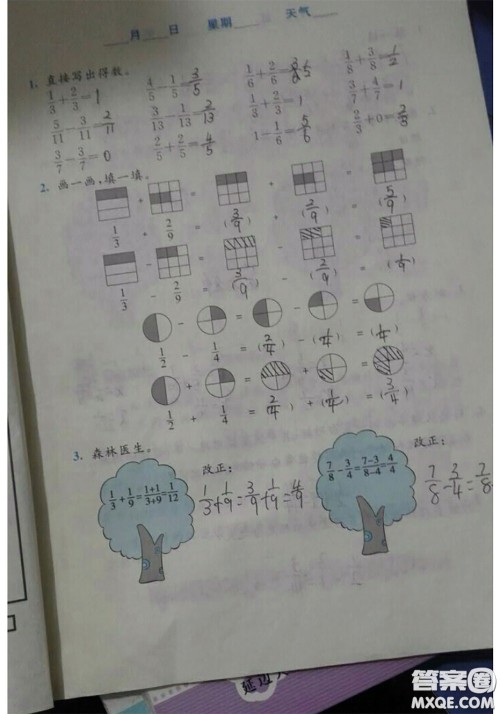 ____月____日 星期____ 天气____
1. 直接写出得数。
1/3+2/3=1 4/5-1/5=3/5 1/6+2/6= 1/8+3/8=1/2
5/11-3/11=2/11 3/13-1/13=2/13 1/3+2/3=1 3/7+4/7=1
3/7-3/7=0 2/5+2/5=4/5 1-1/6=5/6 2/3+0=
2. 画一画,填一填。
1/3 + 2/9 = (3/9) + (2/9) = (5/9)
1/3 - 2/9 = (3/9) - (2/9) = (1/9)
1/2 - 1/4 = (2/4) - (1/4) = (1/4)
1/2 + 1/4 = (2/4) + (1/4) = (3/4)
3. 森林医生。
1/3+1/9=1+1/3+9=1/12 改正: 1/3+1/9=3/9+1/9=4/9
7/8-3/4=7-3/8-4=4/4 改正: 7/8-3/4=7/8
延边
答案圈
MXQE.COM